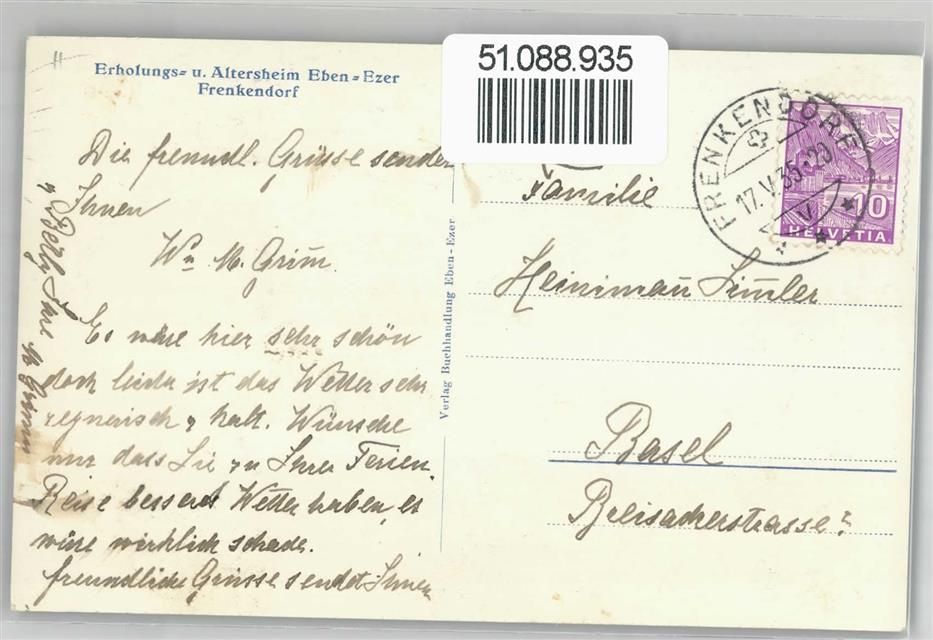 51.088.935
Erholungs- u. Altersheim Eben-Ezer
Frenkendorf
Die freundl. Grüsse sendet
Ihnen
Wn M. Grim.
Es wäre hier sehr schön
doch leider ist das Wetter sehr
regnerisch & kalt. Wünsche
nur dass Sie zu Ihrer Ferien
Reise besseres Wetter haben, es
wäre wirklich schade.
freundliche Grüsse sendet Ihnen
Verlag Buchhandlung Eben-Ezer
FRENKENDORF
17.V.35.-20
10
HELVETIA
Familie
Heiniman Simler
Basel
Breisacherstrasse?